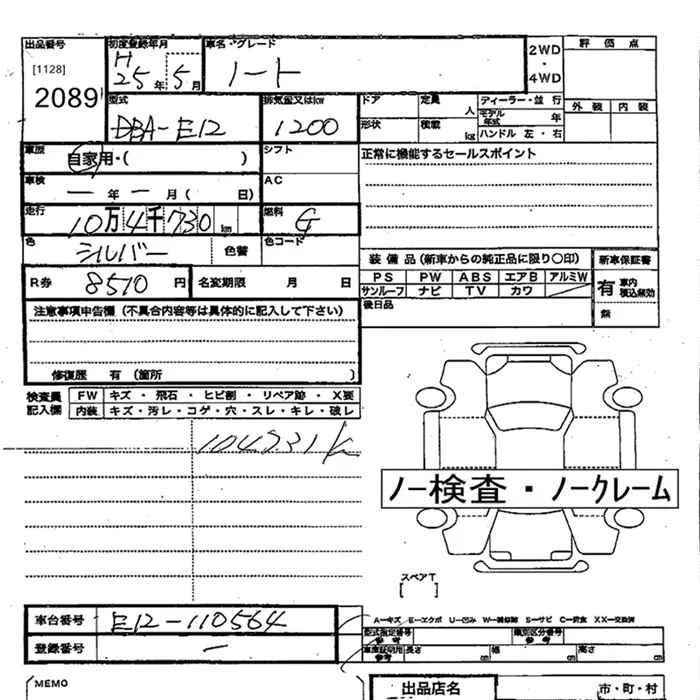 出品番号
[1128]
2089
初度登録年月
H
25年 5月
車名・グレード
ノート
2WD
・
4WD
評価点
外装 内装
型式
DBA-E12
排気量又はkw
1200
ドア
定員
人
ディーラー・並行
モデル年式 年
形状
積載
kg
ハンドル 左・右
車歴
自家用・( )
シフト
正常に機能するセールスポイント
車検
ー年ー月( 日)
AC
走行
10万4千730km
燃料
G
色
シルバー
色替
色コード
装備品(新車からの純正品に限り○印)
新車保証書
PS PW ABS エアB アルミW
サンルーフ ナビ TV カワ
有 車内積込無効
無
後日品
R券
8510円
名変期限 月 日
注意事項申告欄(不具合内容等は具体的に記入して下さい)
修復歴 有(箇所 )
検査員記入欄
FW キズ・飛石・ヒビ割・リペア跡・X要
内装 キズ・汚レ・コゲ・穴・スレ・キレ・破レ
104731k
ノー検査・ノークレーム
スペアT
[ ]
車台番号
E12-110564
登録番号
ー
A―キズ E―エクボ U―凹み W―補修跡 S―サビ C―腐食 XX―交換済
型式指定番号 参考
類別区分番号 参考
車庫証明用 参考
長さ cm
幅 cm
高さ cm
MEMO
出品店名
市・町・村